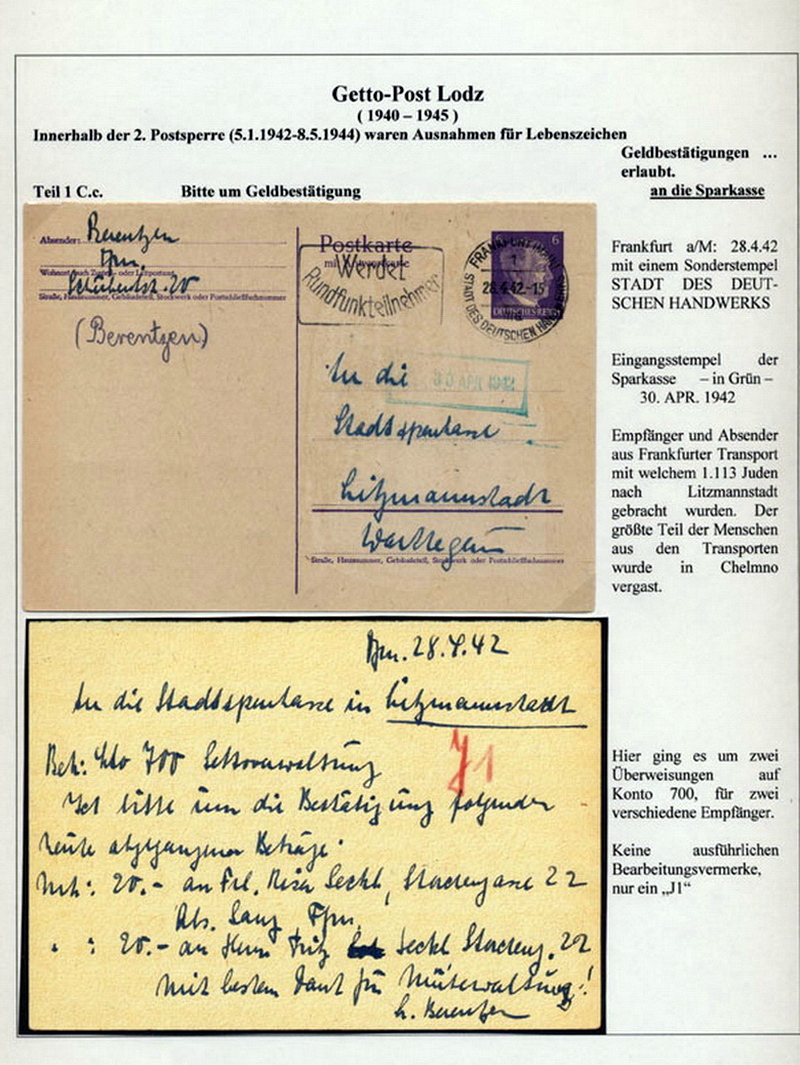 Getto-Post Lodz
( 1940 – 1945 )
Innerhalb der 2. Postsperre (5.1.1942-8.5.1944) waren Ausnahmen für Lebenszeichen
Geldbestätigungen ...
erlaubt.
Teil 1 C.c. Bitte um Geldbestätigung an die Sparkasse
Absender: Berentzen
Ffm.
Wohnort, auch Zustell- oder Leitpostamt
Schützenstr. 20
Straße, Hausnummer, Gebäudeteil, Stockwerk oder Postschließfachnummer
(Berentzen)
Postkarte
Werdet
Rundfunkteilnehmer
FRANKFURT (MAIN)
1
28.4.42-15
STADT DES DEUTSCHEN HANDWERKS
6
DEUTSCHES REICH
An die
30 APR. 1942
Stadtsparkasse
Litzmannstadt
Warthegau
Straße, Hausnummer, Gebäudeteil, Stockwerk oder Postschließfachnummer
Frankfurt a/M: 28.4.42
mit einem Sonderstempel
STADT DES DEUT-
SCHEN HANDWERKS
Eingangsstempel der
Sparkasse – in Grün –
30. APR. 1942
Empfänger und Absender
aus Frankfurter Transport
mit welchem 1.113 Juden
nach Litzmannstadt
gebracht wurden. Der
größte Teil der Menschen
aus den Transporten
wurde in Chelmno
vergast.
Ffm. 28.4.42
An die Stadtsparkasse in Litzmannstadt
Betr: Kto 700 Gettoverwaltung
J1
Ich bitte um die Bestätigung folgender
heute abgegangener Beträge:
Mk: 20.- an Frl. Seckl, 22
Abs. Ffm.
" : 20.- an Herrn Fritz Seckl 22
Mit bestem Dank für Mühewaltung!
Berentzen
Hier ging es um zwei
Überweisungen auf
Konto 700, für zwei
verschiedene Empfänger.
Keine ausführlichen
Bearbeitungsvermerke,
nur ein „J1“